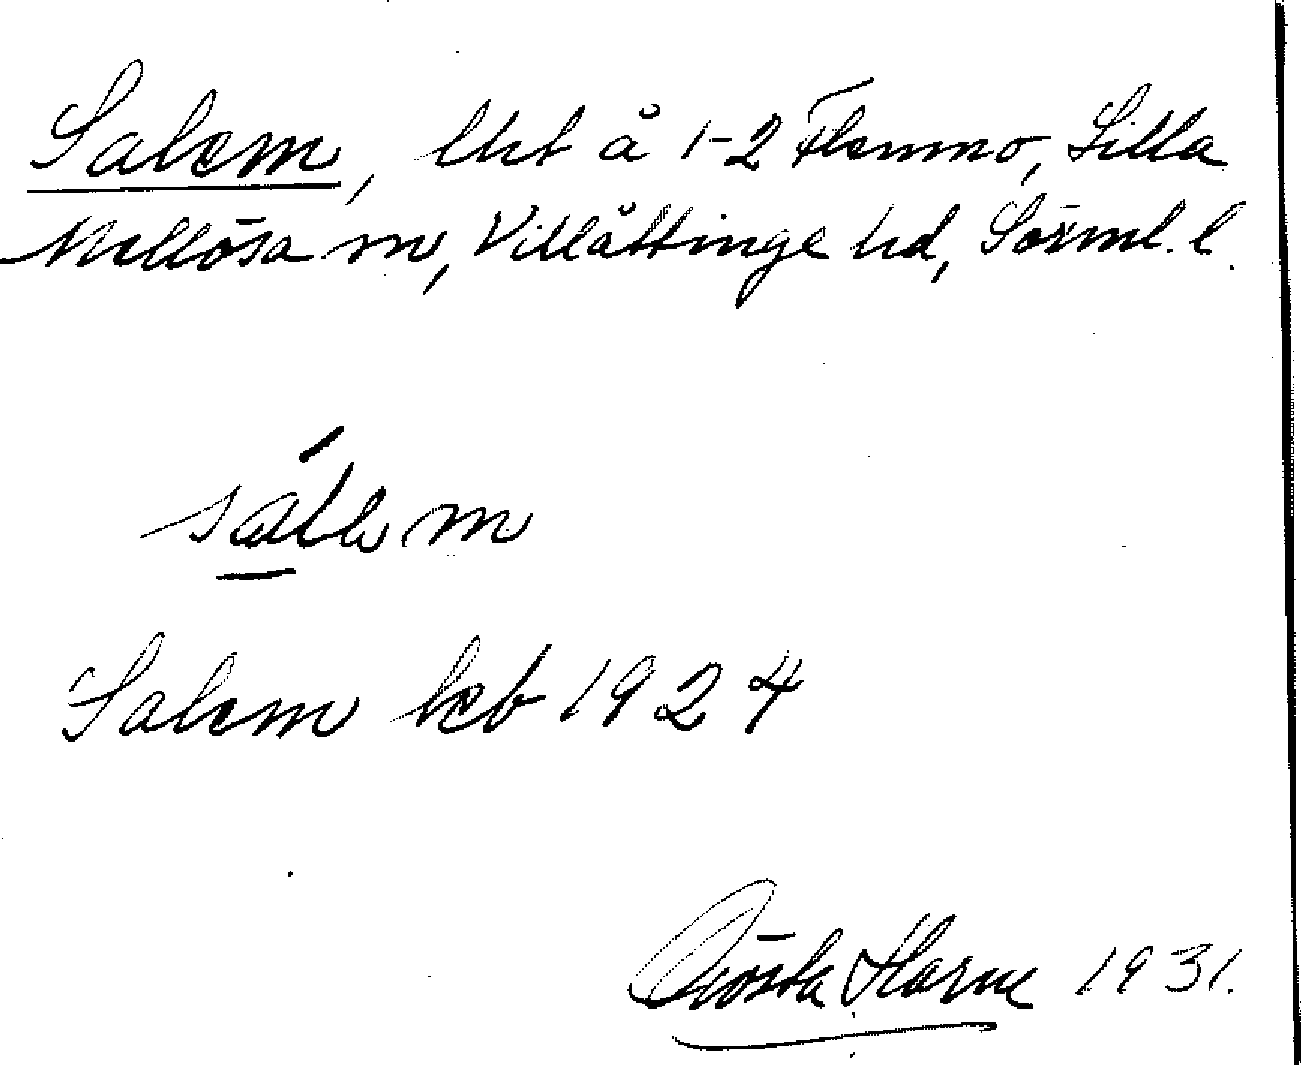 Salem, lht å 1-2 Flenmo, Lilla
Mellösa sn, Villåttinge hd, Sörml. l.
sálem
Salem kcb 1924
Gösta Harne 1931.